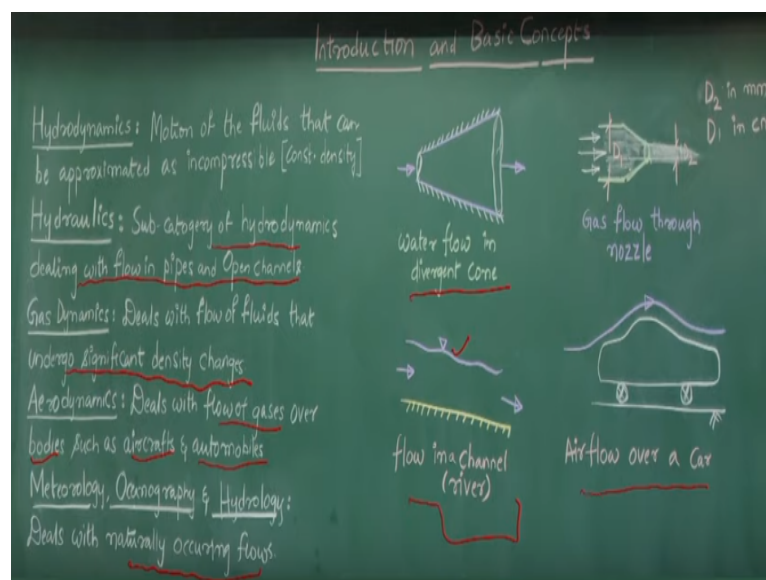 Introduction and Basic Concepts
Hydrodynamics: Motion of the fluids that can
be approximated as incompressible [const. density]
Hydraulics: Sub-catogery of hydrodynamics
dealing with flow in pipes and Open channels
Gas Dynamics: Deals with flow of fluids that
undergo significant density changes
Aerodynamics: Deals with flow of gases over
bodies such as aircrafts & automobiles
Meteorology, Oceanography & Hydrology:
Deals with naturally occuring flows.
water flow in
divergent cone
flow in a channel
(river)
D2 in mm
D1 in cm
D1
Gas flow through
nozzle
Air flow over a car